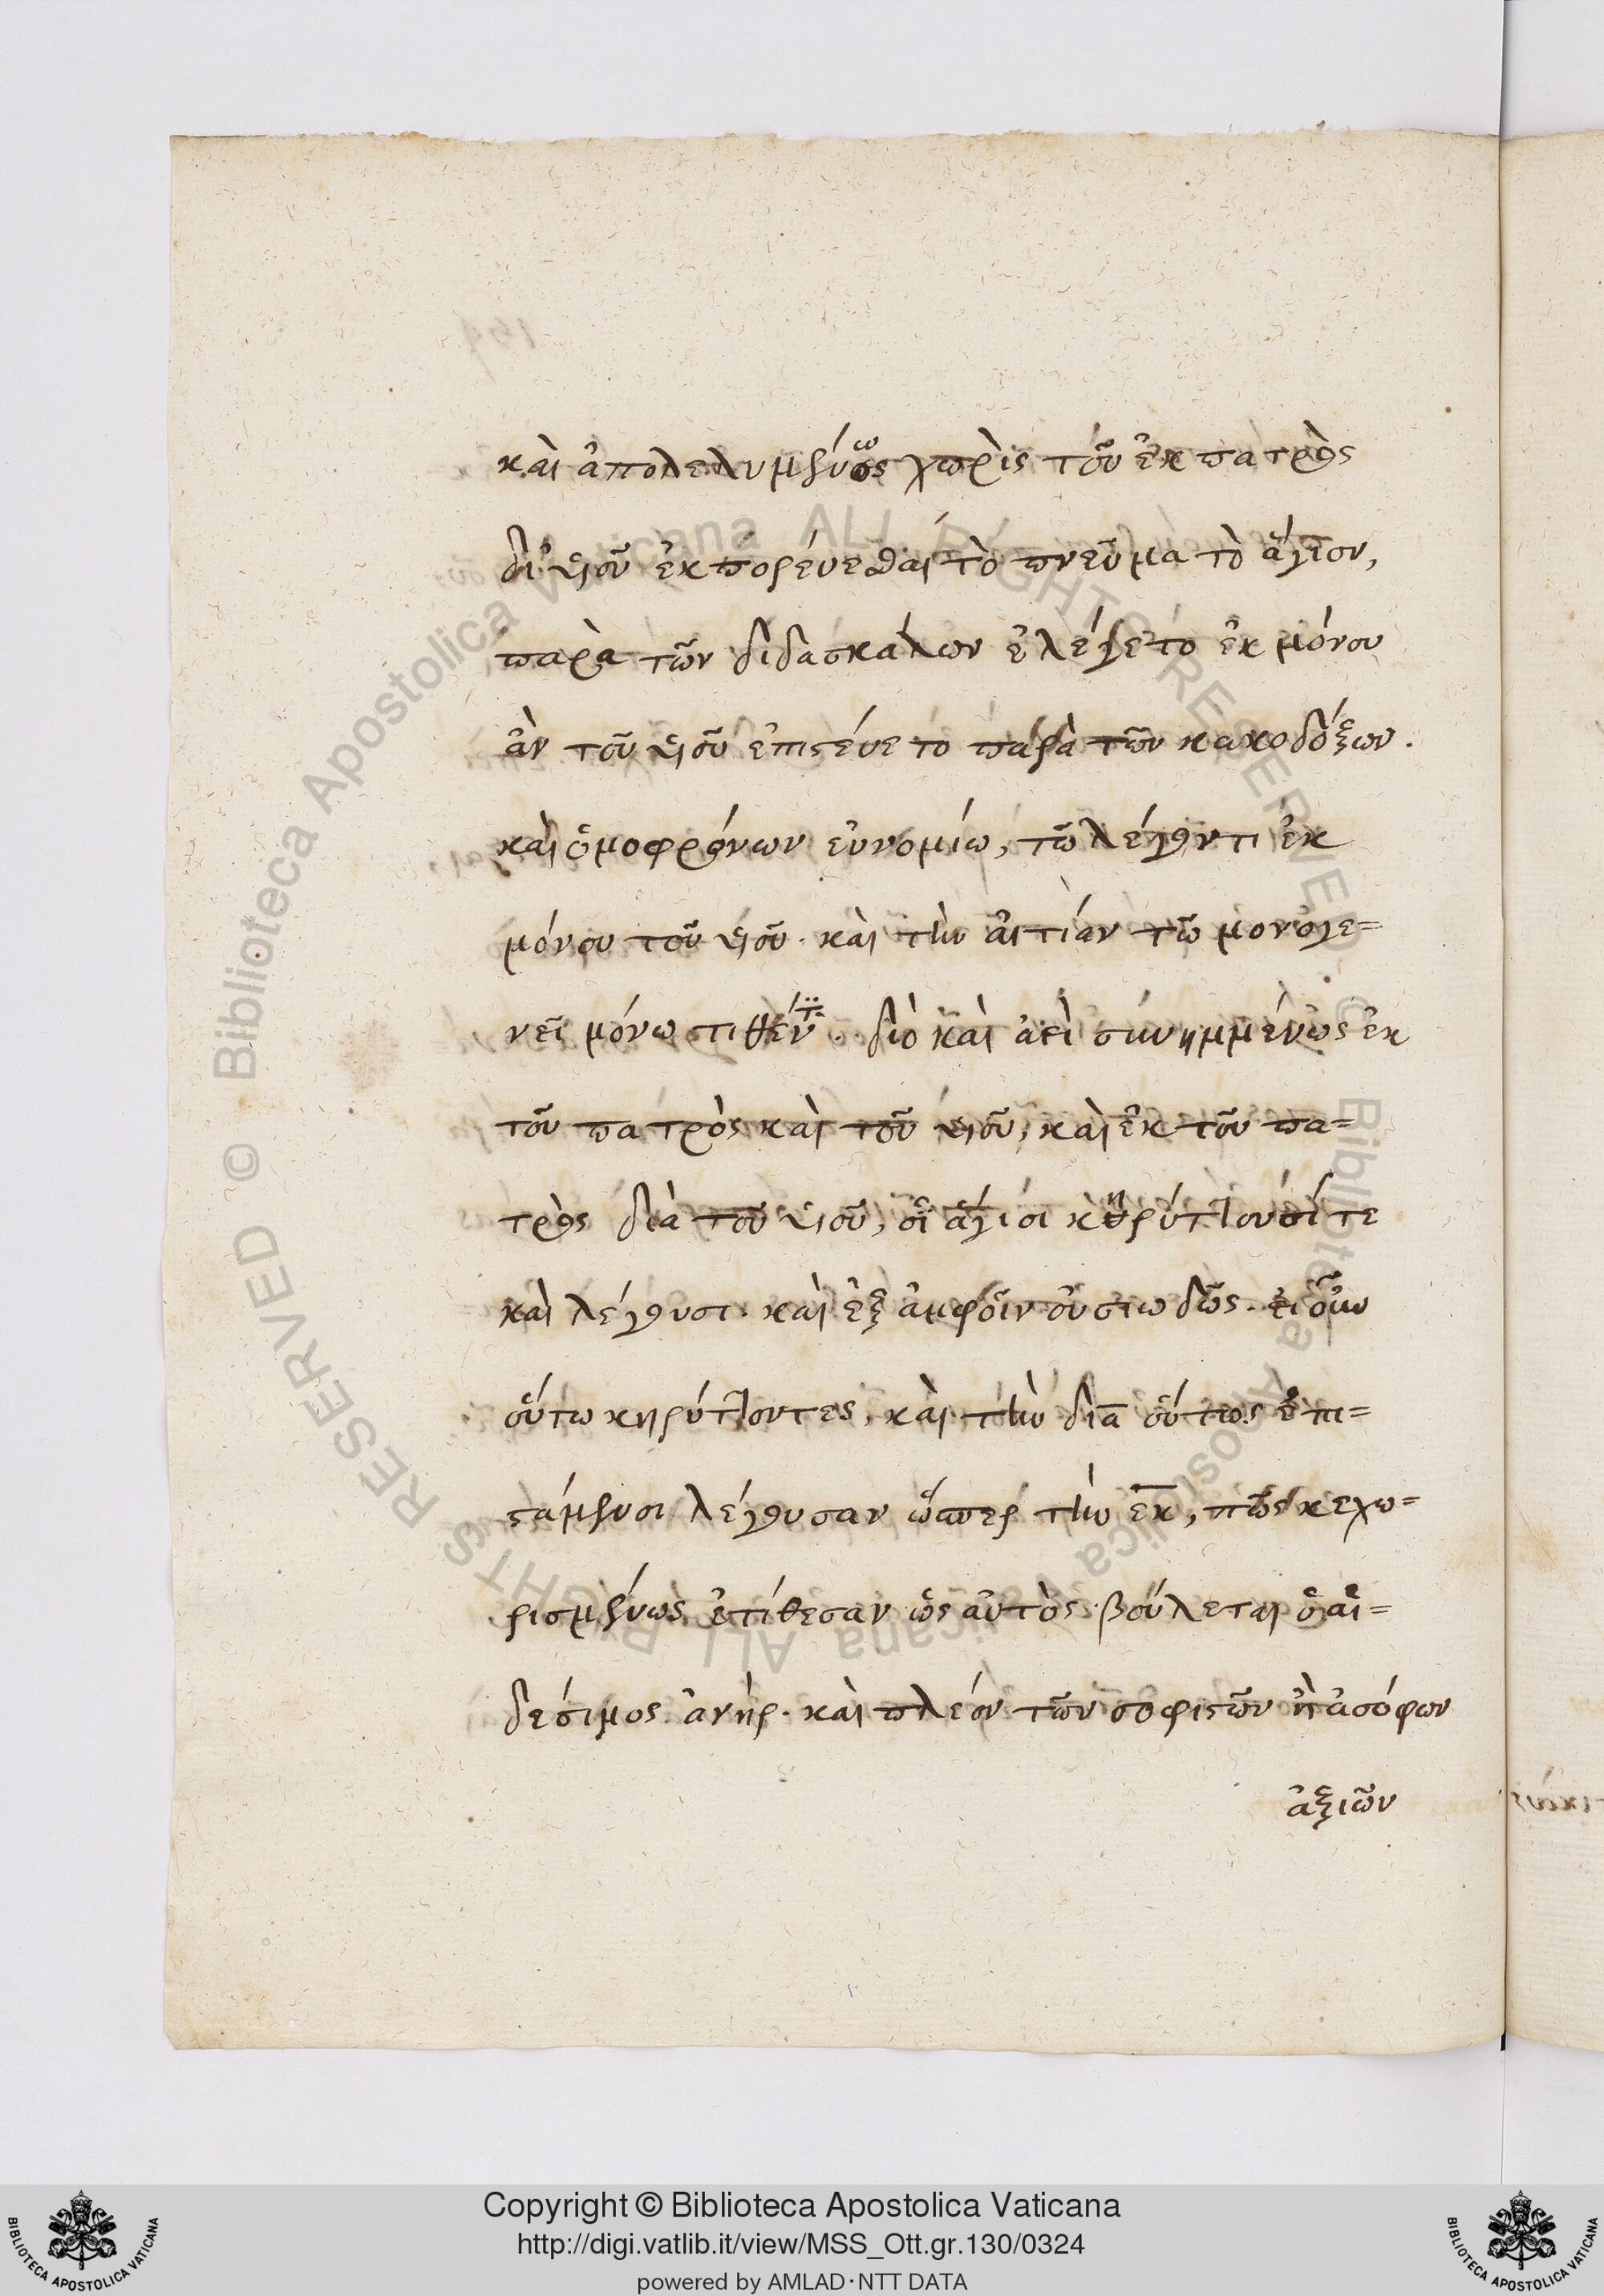 καὶ ἀπολελυμένως χωρὶς τοῦ ἐκ πατρὸς
δι' υἱοῦ ἐκπορεύεσθαι τὸ πνεῦμα τὸ ἅγιον,
παρὰ τῶν διδασκάλων ἐλέγετο ἐκ μόνου
ἂν τοῦ υἱοῦ ἐπιστεύετο παρὰ τῶν κακοδόξων.
καὶ ὁμοφρόνων εὐνομίω, τῶ λέγοντι ἐκ
μόνου τοῦ υἱοῦ. καὶ τὴν αἰτίαν τῶ μονογε=
νεῖ μόνω τιθέντι. διὸ καὶ ἀεὶ συνημμένως ἐκ
τοῦ πατρὸς καὶ τοῦ υἱοῦ, καὶ ἐκ τοῦ πα=
τρὸς διὰ τοῦ υἱοῦ, οἱ ἅγιοι κηρύττουσί τε
καὶ λέγουσι. καὶ ἐξ ἀμφοῖν οὐσιωδῶς. εἰ οὖν
οὕτω κηρύττοντες, καὶ τὴν διὰ οὕτως ἐπι=
στάμενοι λέγουσαν ὥσπερ τὴν ἐκ, πῶς κεχω=
ρισμένως ἐτίθεσαν ὡς αὐτὸς βούλεται ὁ αἰ=
δέσιμος ἀνήρ. καὶ πλέον τῶν σοφιστῶν ἢ ἀσόφων
ἀξιῶν
Copyright © Biblioteca Apostolica Vaticana
http://digi.vatlib.it/view/MSS_Ott.gr.130/0324
powered by AMLAD·NTT DATA
BIBLIOTECA APOSTOLICA VATICANA
BIBLIOTECA APOSTOLICA VATICANA
© Biblioteca Apostolica Vaticana ALL RIGHTS RESERVED
© Biblioteca Apostolica Vaticana ALL RIGHTS RESERVED